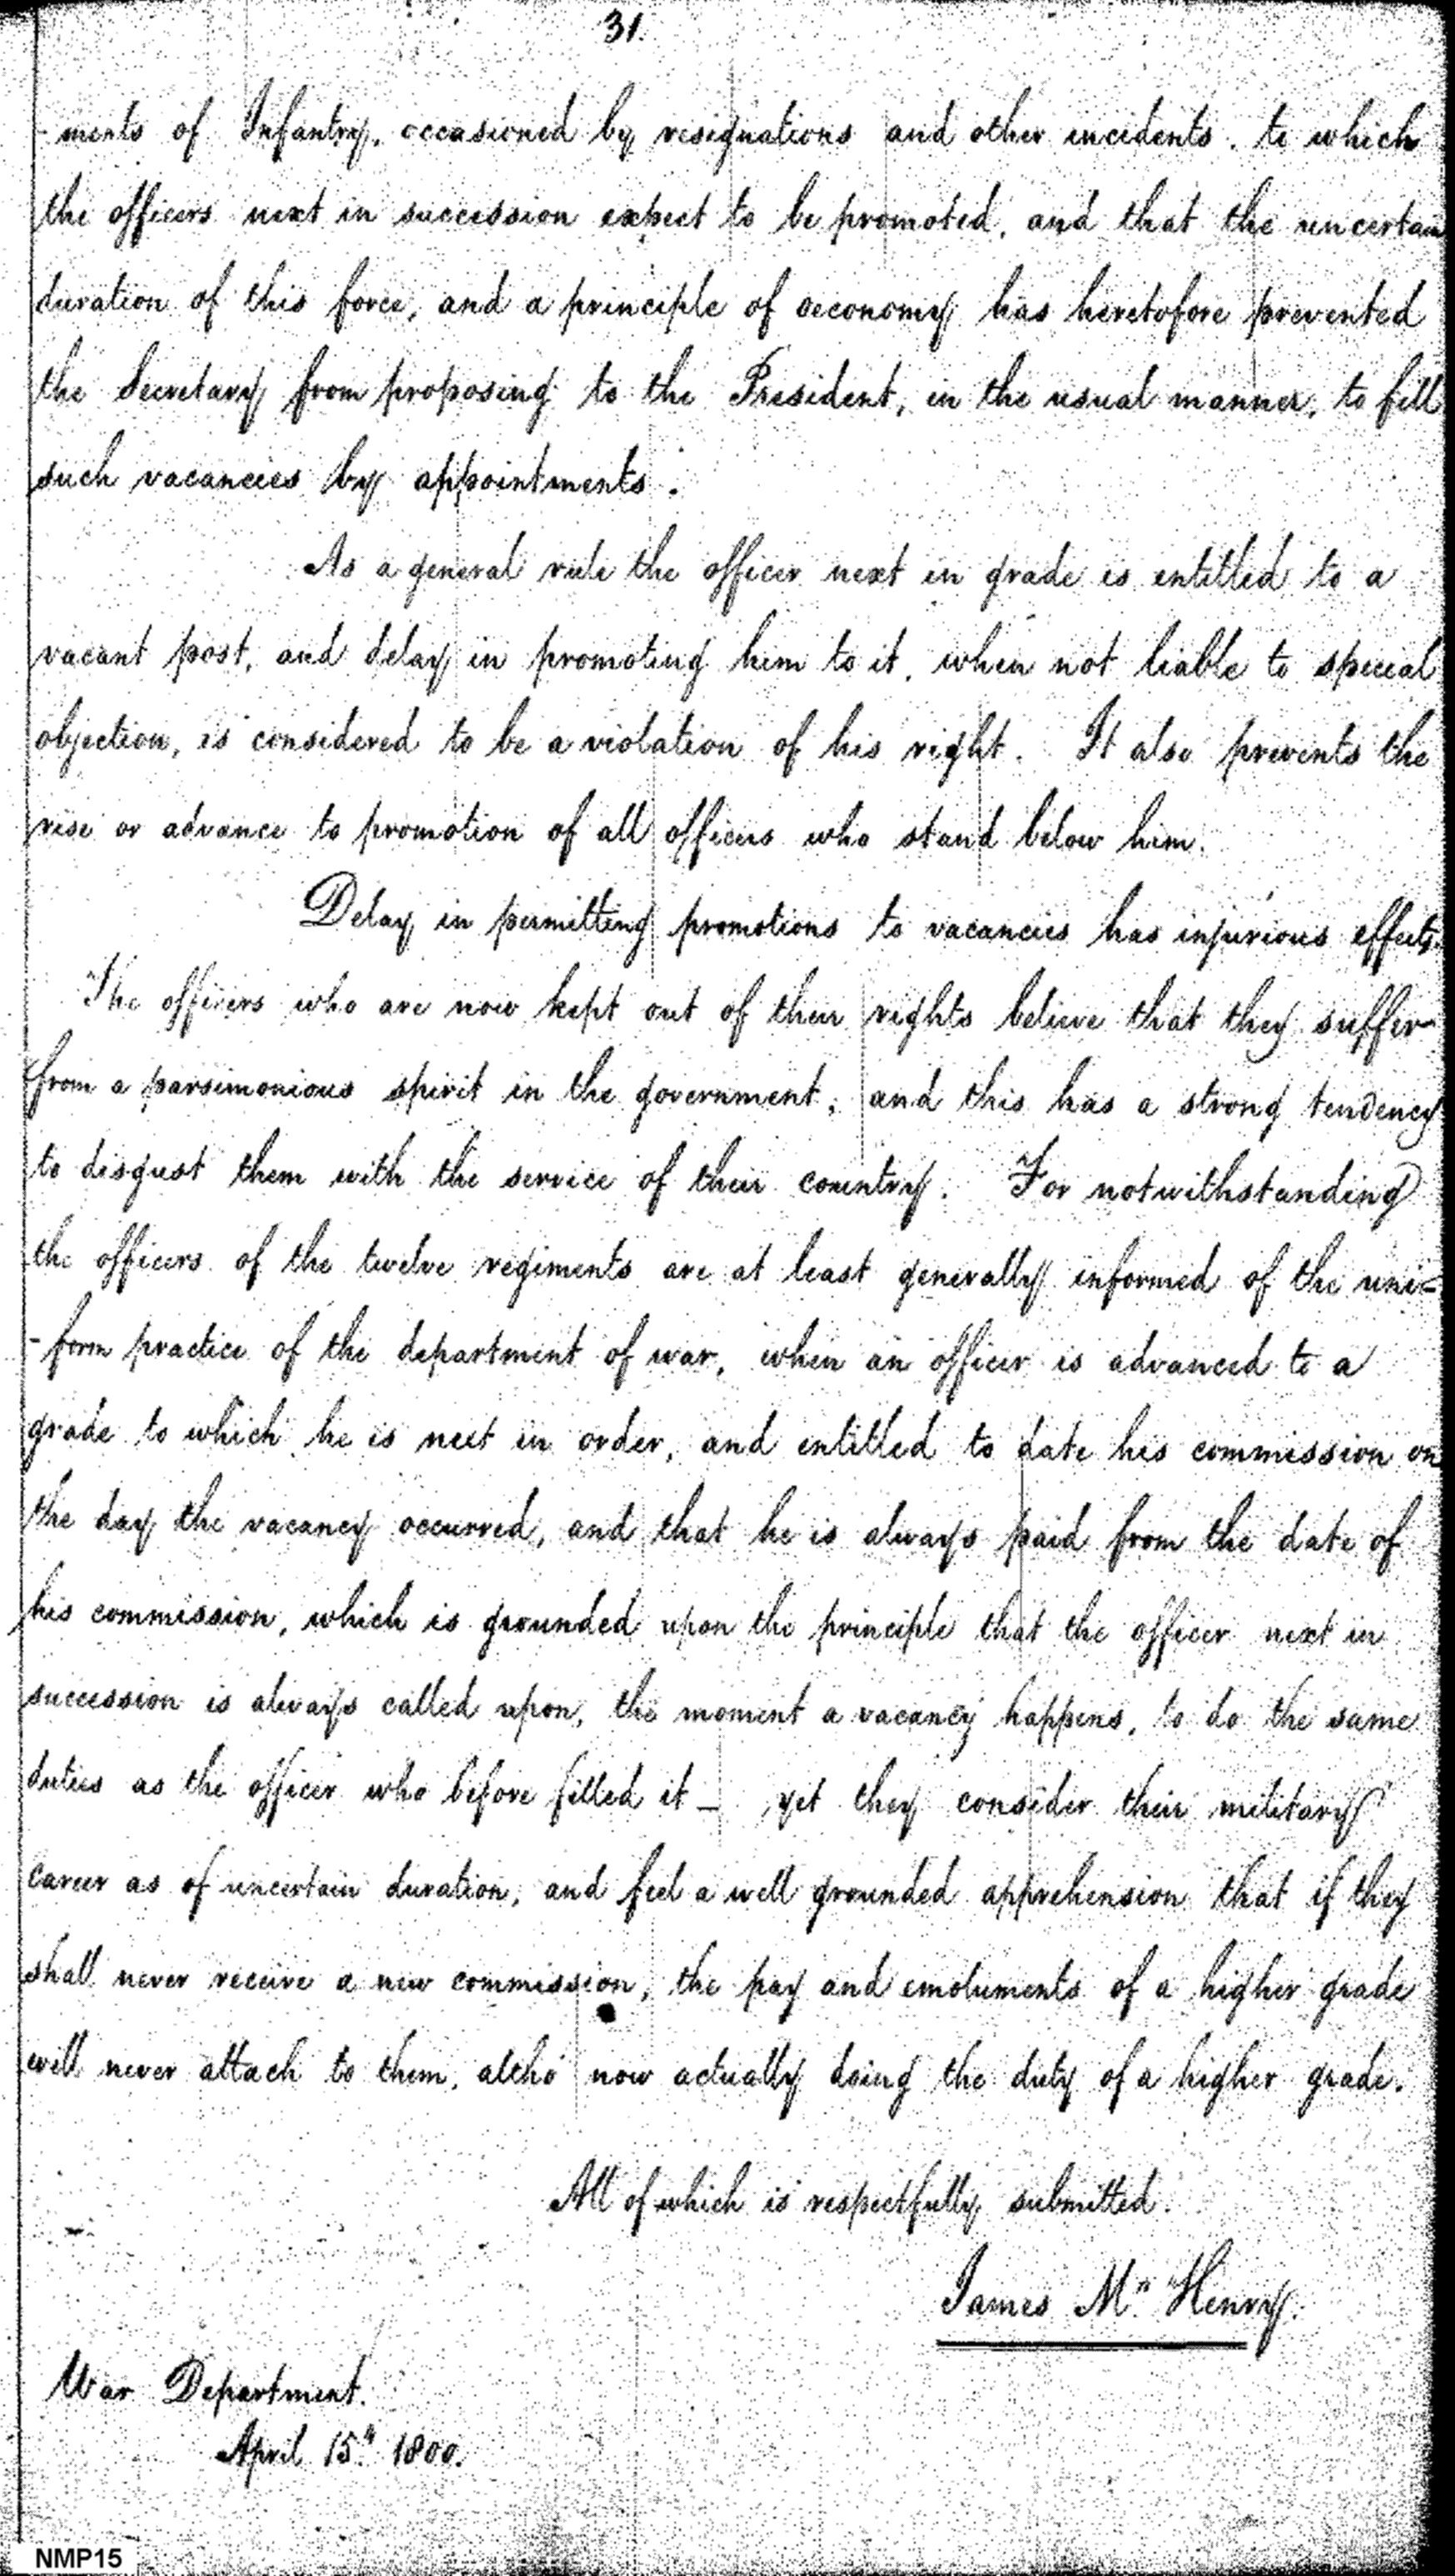 31.
-ments of Infantry, occasioned by resignations and other incidents, to which
the officers next in succession expect to be promoted, and that the uncertain
duration of this force, and a principle of oeconomy, has heretofore prevented
the Secretary from proposing to the President, in the usual manner, to fill
such vacancies by appointments.
As a general rule the officer next in grade is entitled to a
vacant post, and delay in promoting him to it, when not liable to special
objection, is considered to be a violation of his right. It also prevents the
rise or advance to promotion of all officers who stand below him.
Delay in permitting promotions to vacancies has injurious effects.
The officers who are now kept out of their rights believe that they suffer
from a parsimonious spirit in the government; and this has a strong tendency
to disgust them with the service of their country. For notwithstanding
the officers of the twelve regiments are at least generally informed of the uni-
-form practice of the department of war, when an officer is advanced to a
grade to which he is next in order, and entitled to date his commission on
the day the vacancy occurred, and that he is always paid from the date of
his commission, which is grounded upon the principle that the officer next in
succession is always called upon, the moment a vacancy happens, to do the same
duties as the officer who before filled it — yet they consider their military
career as of uncertain duration, and feel a well grounded apprehension that if they
shall never receive a new commission, the pay and emoluments of a higher grade
will never attach to them, altho' now actually doing the duty of a higher grade.
All of which is respectfully submitted.
James Mc. Henry.
War Department.
April 15th 1800.
NMP15